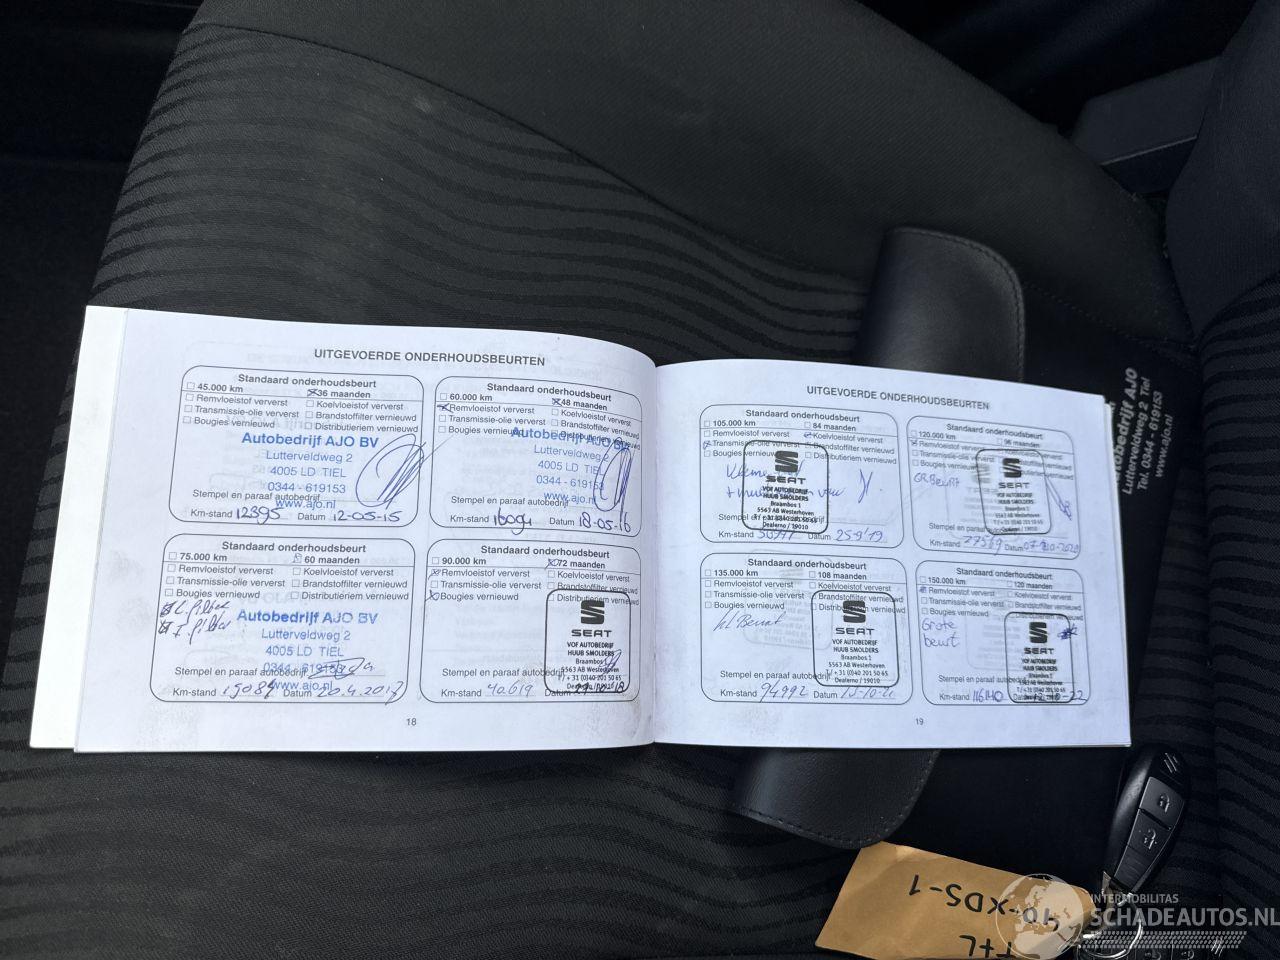 UITGEVOERDE ONDERHOUDSBEURTEN
Standaard onderhoudsbeurt
45.000 km 36 maanden
Remvloeistof ververst Koelvloeistof ververst
Transmissie-olie ververst Brandstoffilter vernieuwd
Bougies vernieuwd Distributieriem vernieuwd
Autobedrijf AJO BV
Lutterveldweg 2
4005 LD TIEL
0344 - 619153
www.ajo.nl
Stempel en paraaf autobedrijf
Km-stand 12395 Datum 12-05-15
Standaard onderhoudsbeurt
60.000 km 48 maanden
Remvloeistof ververst Koelvloeistof ververst
Transmissie-olie ververst Brandstoffilter vernieuwd
Bougies vernieuwd Distributieriem vernieuwd
Autobedrijf AJO BV
Lutterveldweg 2
4005 LD TIEL
0344 - 619153
www.ajo.nl
Stempel en paraaf autobedrijf
Km-stand 16091 Datum 18-05-16
Standaard onderhoudsbeurt
75.000 km 60 maanden
Remvloeistof ververst Koelvloeistof ververst
Transmissie-olie ververst Brandstoffilter vernieuwd
Bougies vernieuwd Distributieriem vernieuwd
Autobedrijf AJO BV
Lutterveldweg 2
4005 LD TIEL
0344 - 619153
www.ajo.nl
Stempel en paraaf autobedrijf
Km-stand 19084 Datum
Standaard onderhoudsbeurt
90.000 km 72 maanden
Remvloeistof ververst Koelvloeistof ververst
Transmissie-olie ververst Brandstoffilter vernieuwd
Bougies vernieuwd Distributieriem vernieuwd
SEAT
VOF AUTOBEDRIJF
HUUB SMOLDERS
Braambos 1
5563 AB Westerhoven
T/ + 31 (0)40 201 50 65
Dealerno / 19010
Stempel en paraaf autobedrijf
Km-stand 40.619 Datum
18
UITGEVOERDE ONDERHOUDSBEURTEN
Standaard onderhoudsbeurt
105.000 km 84 maanden
Remvloeistof ververst Koelvloeistof ververst
Transmissie-olie ververst Brandstoffilter vernieuwd
Bougies vernieuwd Distributieriem vernieuwd
SEAT
VOF AUTOBEDRIJF
HUUB SMOLDERS
Braambos 1
5563 AB Westerhoven
T/ + 31 (0)40 201 50 65
Dealerno / 19010
Stempel en paraaf autobedrijf
Km-stand Datum 25-9'19
Standaard onderhoudsbeurt
120.000 km 96 maanden
Remvloeistof ververst Koelvloeistof ververst
Transmissie-olie ververst Brandstoffilter vernieuwd
Bougies vernieuwd Distributieriem vernieuwd
GR Beurt
SEAT
VOF AUTOBEDRIJF
HUUB SMOLDERS
Braambos 1
5563 AB Westerhoven
T/ + 31 (0)40 201 50 65
Dealerno / 19010
Stempel en paraaf autobedrijf
Km-stand 77569 Datum
Standaard onderhoudsbeurt
135.000 km 108 maanden
Remvloeistof ververst Koelvloeistof ververst
Transmissie-olie ververst Brandstoffilter vernieuwd
Bougies vernieuwd Distributieriem vernieuwd
kl Beurt
SEAT
VOF AUTOBEDRIJF
HUUB SMOLDERS
Braambos 1
5563 AB Westerhoven
T/ + 31 (0)40 201 50 65
Dealerno / 19010
Stempel en paraaf autobedrijf
Km-stand 94992 Datum
Standaard onderhoudsbeurt
150.000 km 120 maanden
Remvloeistof ververst Koelvloeistof ververst
Transmissie-olie ververst Brandstoffilter vernieuwd
Bougies vernieuwd Distributieriem vernieuwd
Grote
beurt
SEAT
VOF AUTOBEDRIJF
HUUB SMOLDERS
Braambos 1
5563 AB Westerhoven
T/ + 31 (0)40 201 50 65
Dealerno / 19010
Stempel en paraaf autobedrijf
Km-stand 116140 Datum
19
Autobedrijf AJO
Lutterveldweg 2 Tiel
Tel. 0344 - 619153
www.ajo.nl
-XDS-1
T+L
INTERMOBILITAS
SCHADEAUTOS.NL